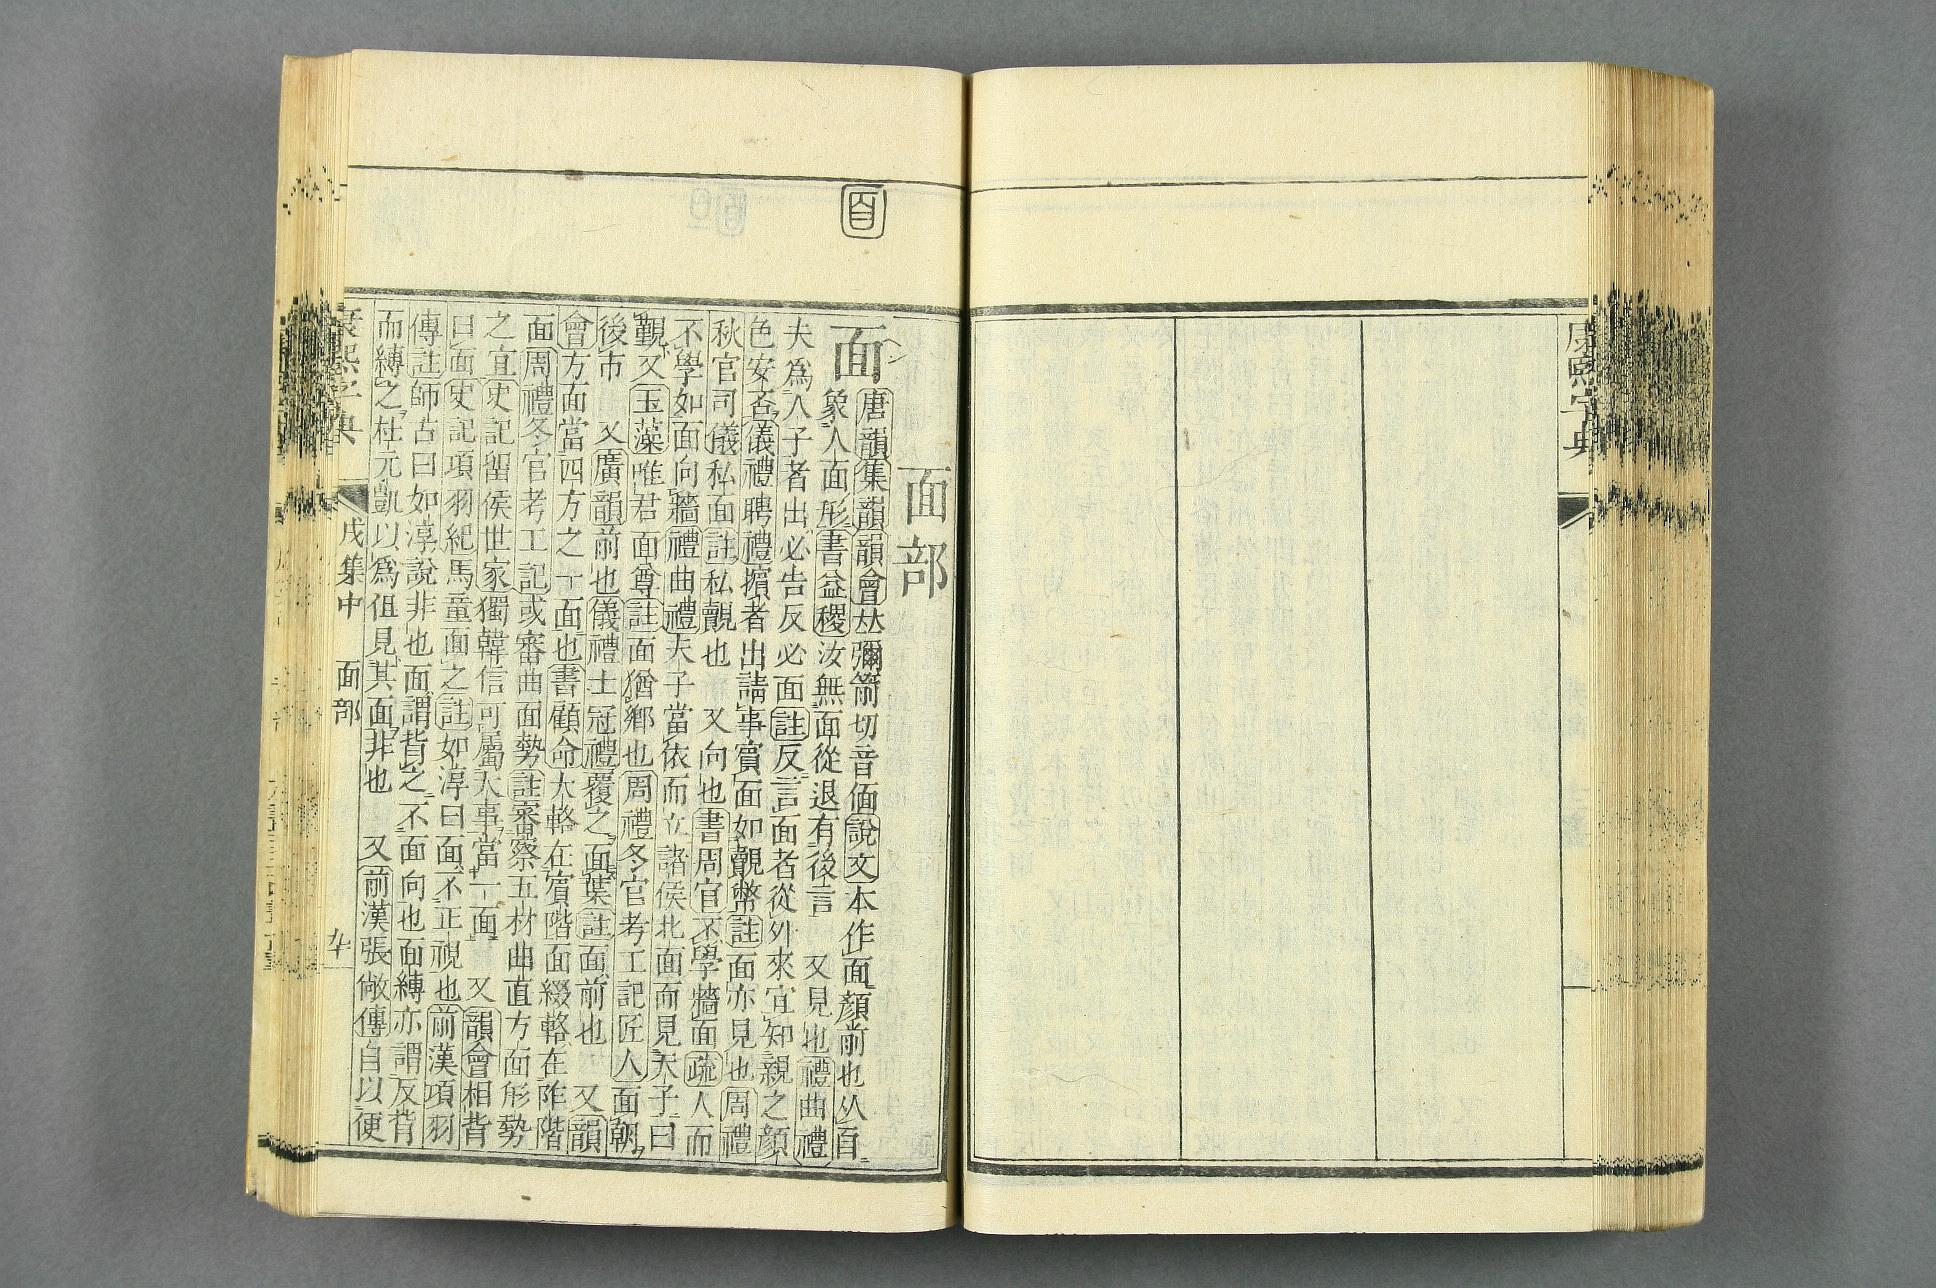 康熙字典
面部
面
唐韻集韻韻會𠀤彌箭切音偭說文本作𡇢顏前也从𦣻
象人面形書益稷汝無面從退有後言 又見也禮曲禮
夫爲人子者出必告反必面註反言面者從外來宜知親之顏
色安否儀禮聘禮擯者出請事賓面如覿幣註面亦見也周禮
秋官司儀私面註私覿也 又向也書周官不學牆面疏人而
不學如面向牆禮曲禮天子當依而立諸侯北面而見天子曰
覲又玉藻唯君面尊註面猶鄕也周禮冬官考工記匠人面朝
後市 又廣韻前也儀禮士冠禮覆之面葉註面前也 又韻
會方面當四方之一面也書顧命大輅在賓階面綴輅在阼階
面周禮冬官考工記或審曲面勢註審察五材曲直方面形勢
之宜史記留侯世家獨韓信可屬大事當一面 又韻會相背
曰面史記項羽紀馬童面之註如淳曰面不正視也前漢項羽
傳註師古曰如淳說非也面謂背之不面向也面縛亦謂反背
而縛之杜元凱以爲但見其面非也 又前漢張敞傳自以便
康熙字典 戌集中 面部 九